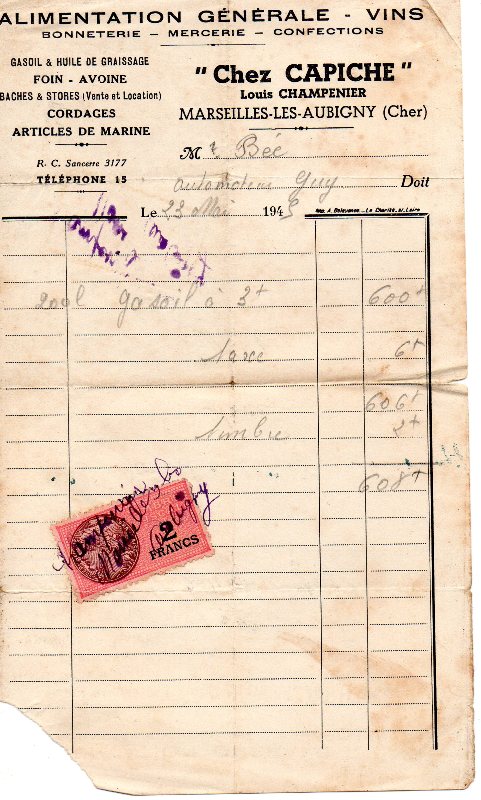 ALIMENTATION GÉNÉRALE - VINS
BONNETERIE - MERCERIE - CONFECTIONS
GASOIL & HUILE DE GRAISSAGE
FOIN - AVOINE
BACHES & STORES (Vente et Location)
CORDAGES
ARTICLES DE MARINE
R. C. Sancerre 3177
TÉLÉPHONE 15
" Chez CAPICHE "
Louis CHAMPENIER
MARSEILLES-LES-AUBIGNY (Cher)
Mr Bée
automoteur Guy Doit
Le 23 Mai 1945
Imp. A. Delayance - La Charité-s.-Loire
200l gasoil à 3f 600f
taxe 6f
606f
timbre 2f
608f
2
FRANCS